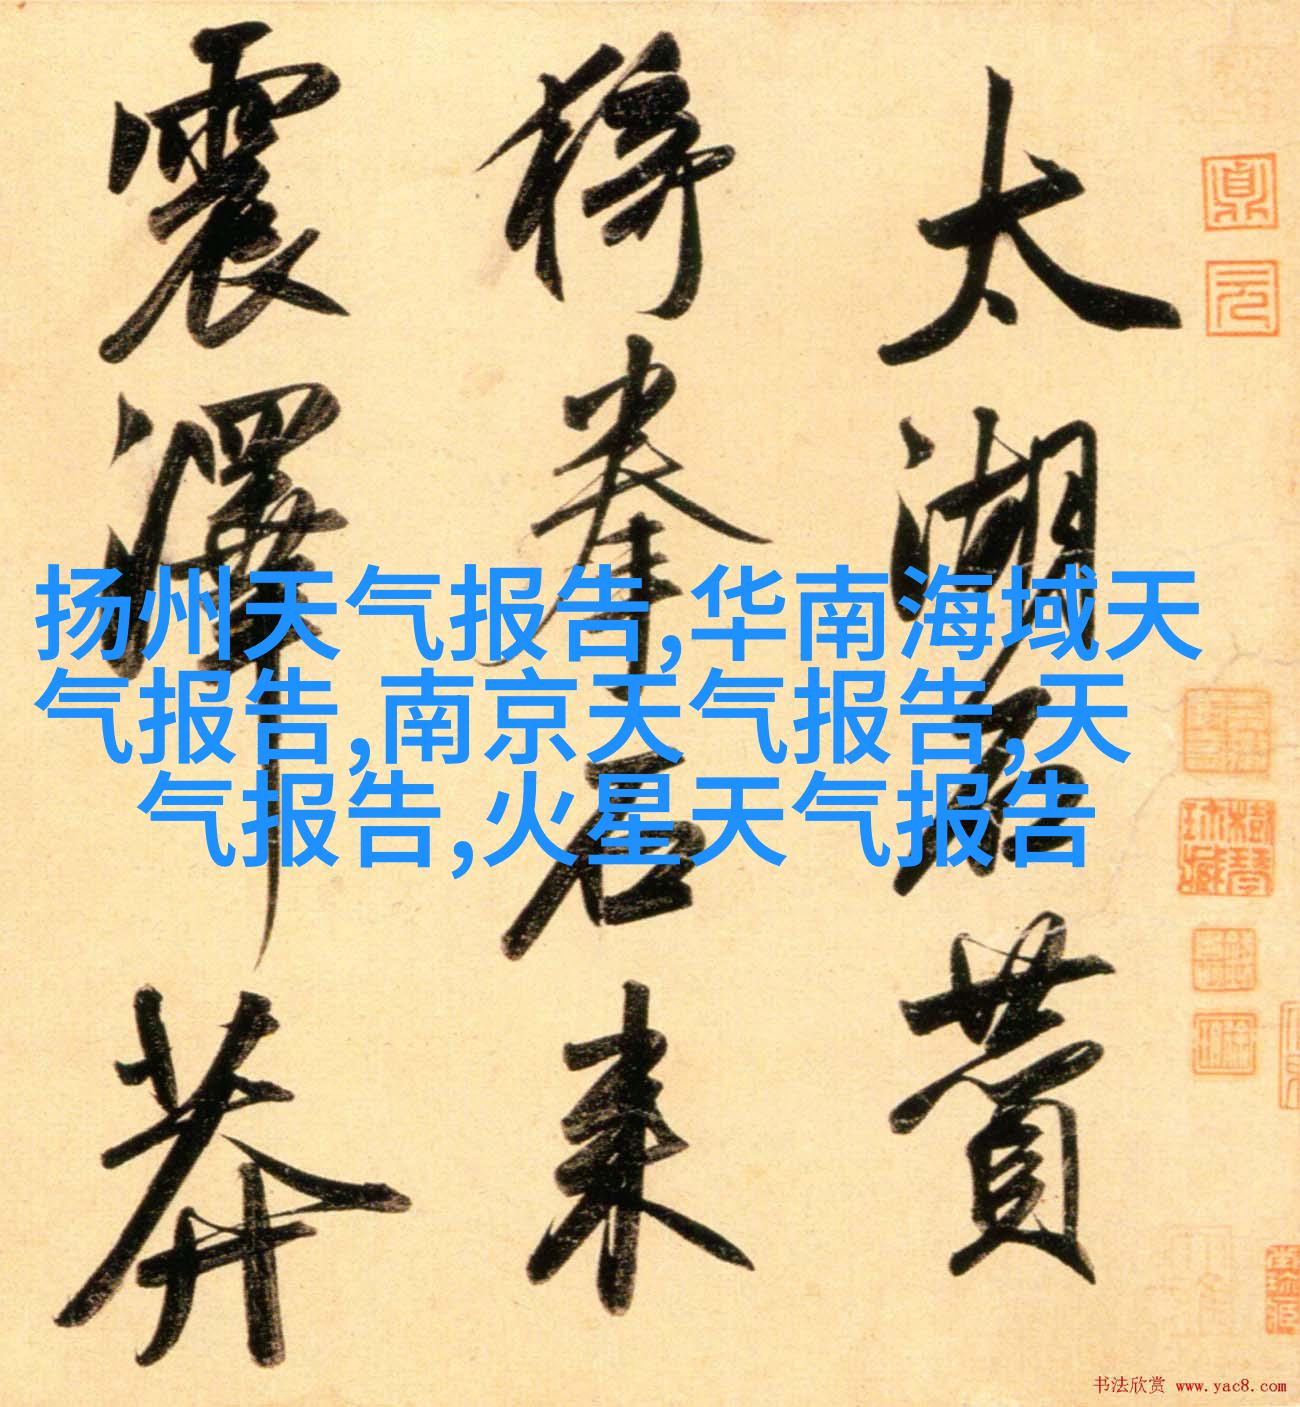 太湖石贊
猗拳石來
震澤莽
扬州天气报告,华南海域天
气报告,南京天气报告,天
气报告,火星天气报告
书法欣赏 www.yac8.com